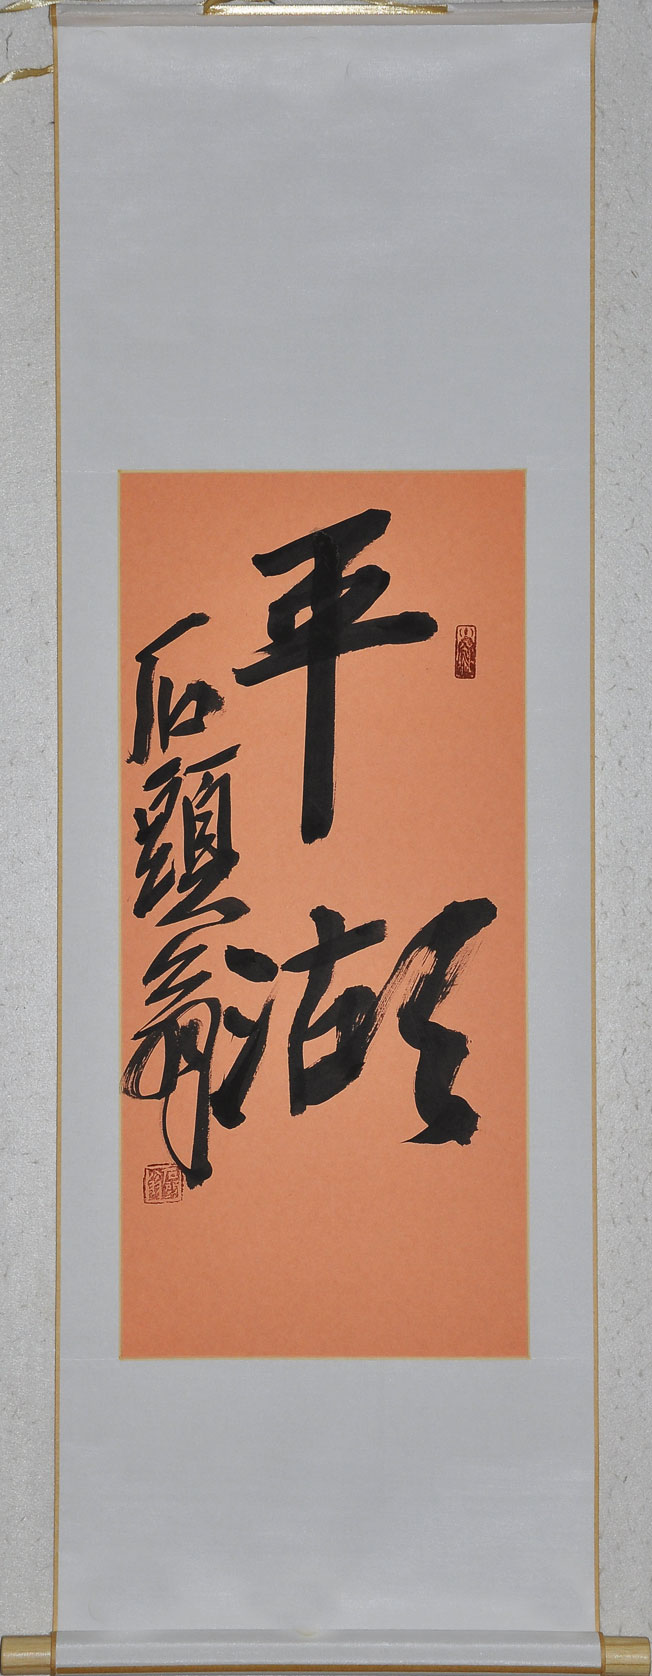 平湖
石頭翁